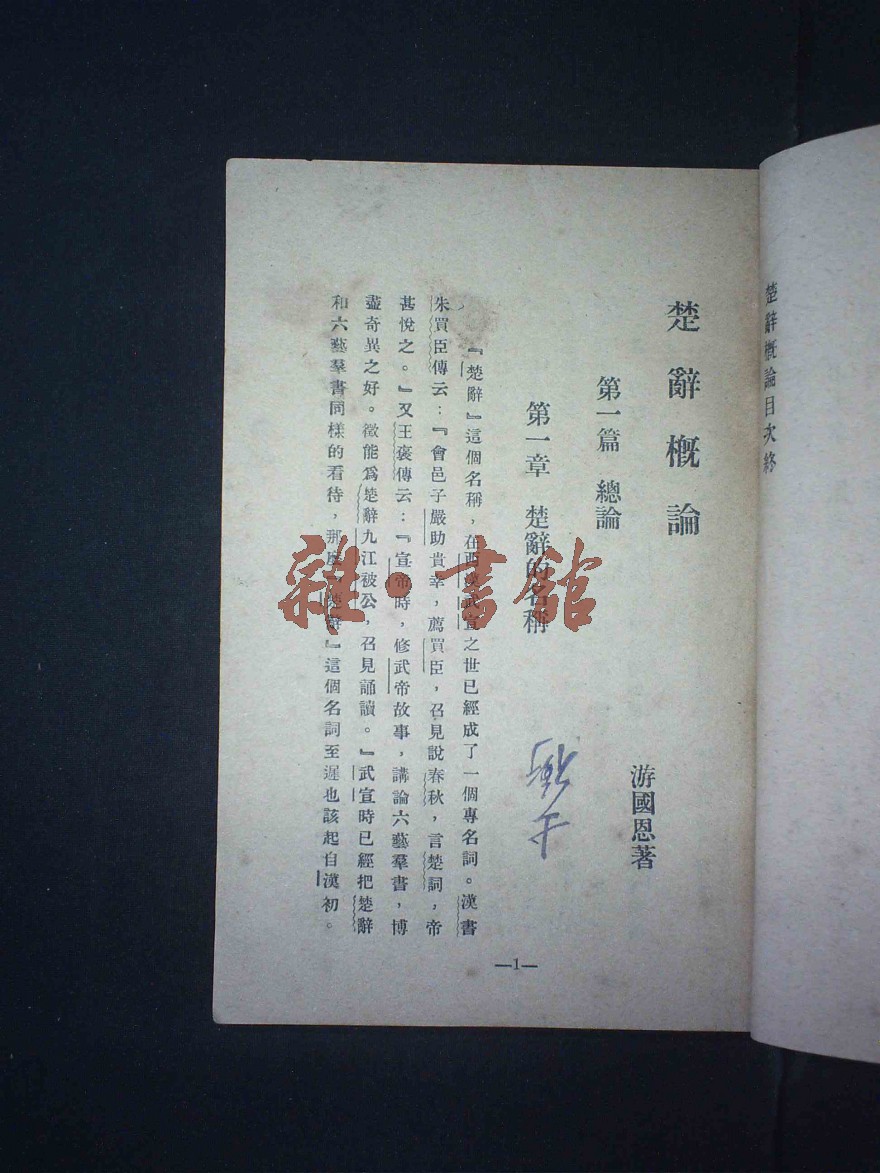 楚辭概論目次終
楚辭概論
游國恩著
第一篇 總論
第一章 楚辭的名稱
『楚辭』這個名稱，在西漢武宣之世已經成了一個專名詞。漢書
朱買臣傳云：『會邑子嚴助貴幸，薦買臣，召見說春秋，言楚詞，帝
甚悅之。』又王褒傳云：『宣帝時，修武帝故事，講論六藝羣書，博
盡奇異之好。徵能爲楚辭九江被公，召見誦讀。』武宣時已經把楚辭
和六藝羣書同樣的看待，那麽『楚辭』這個名詞至遲也該起自漢初。
—1—
雜·書館